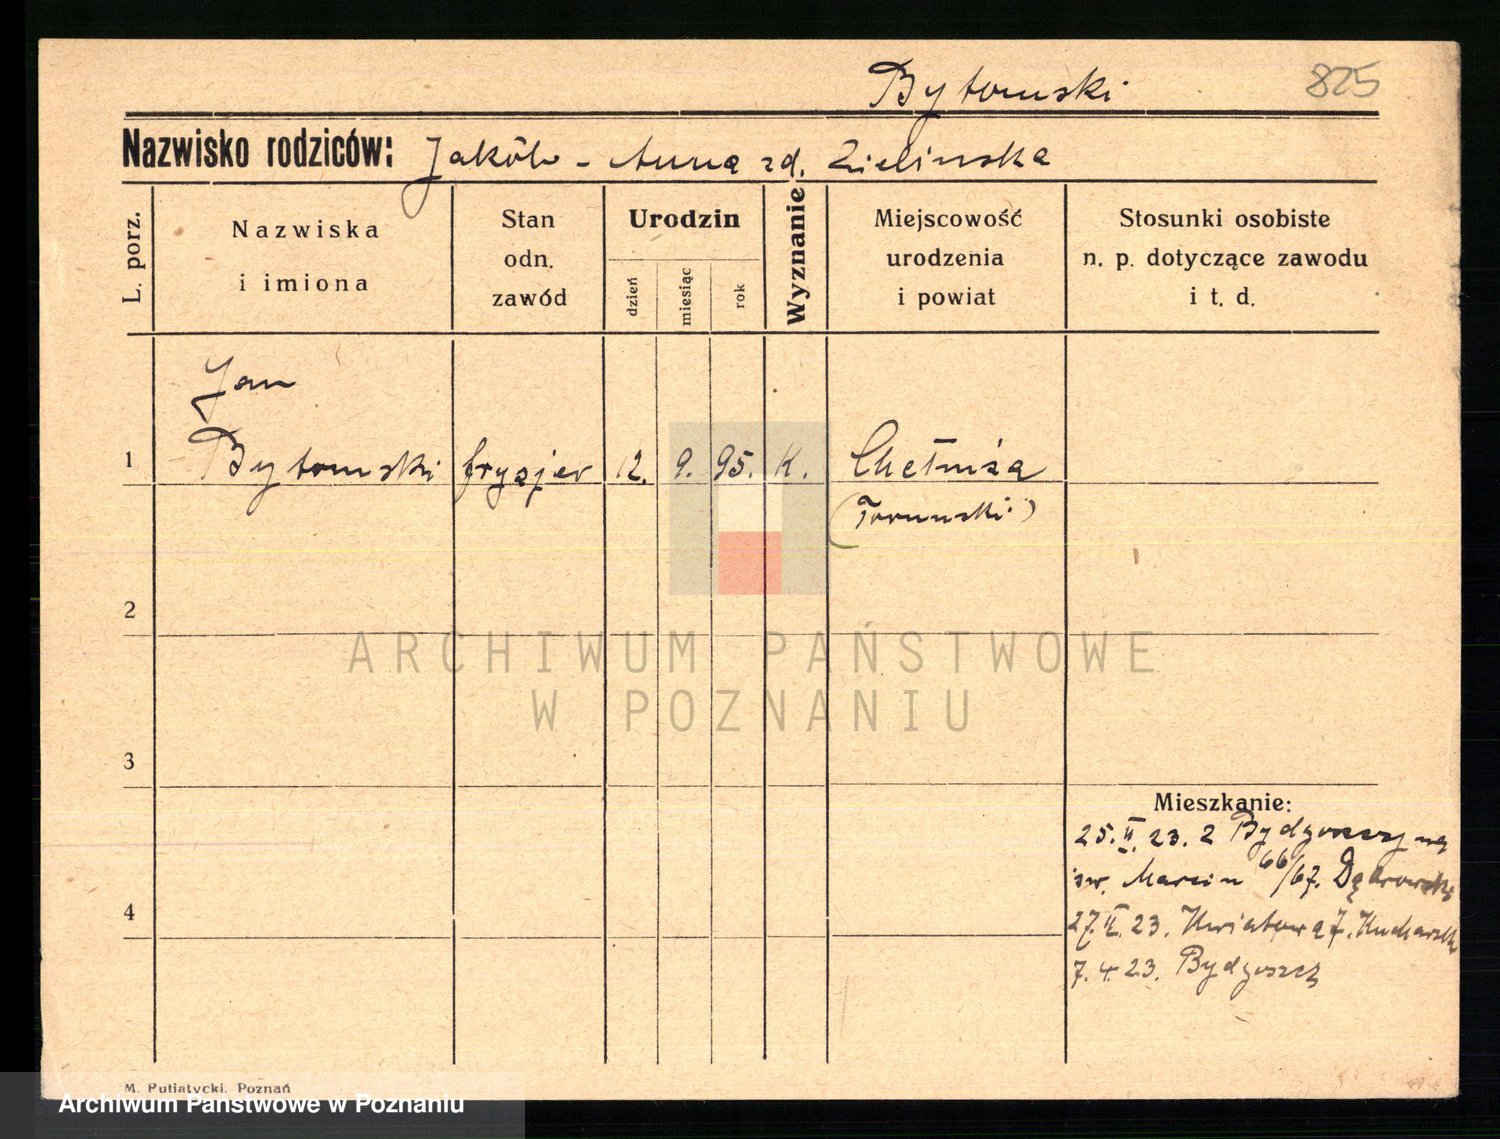 Bytomski
825
Nazwisko rodziców: Jakób - Anna zd. Zielinska
L. porz.
Nazwiska
i imiona
Stan
odn.
zawód
Urodzin
dzień
miesiąc
rok
Wyznanie
Miejscowość
urodzenia
i powiat
Stosunki osobiste
n. p. dotyczące zawodu
i t. d.
Jan
1 Bytomski fryzjer 12. 9. 95. K. Chełmża
(Toruński)
2
ARCHIWUM PAŃSTWOWE
W POZNANIU
3
Mieszkanie:
25. II. 23. z Bydgoszczy na
św. Marcin 66/67. Dąbrowski
4
27. II. 23. Kwiatowa 7.
7. 4. 23. Bydgoszcz
M. Putiatycki, Poznań
Archiwum Państwowe w Poznaniu